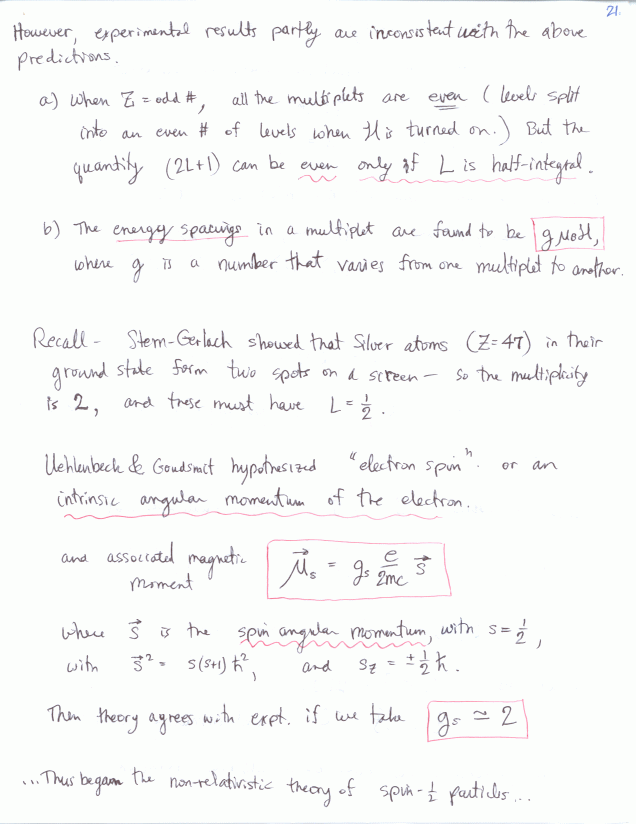 21.
However, experimental results partly are inconsistent with the above
predictions.
a) When Z = odd #, all the multiplets are even (levels split
into an even # of levels when H is turned on.) But the
quantity (2L+1) can be even only if L is half-integral.
b) The energy spacings in a multiplet are found to be gμ₀H,
where g is a number that varies from one multiplet to another.
Recall - Stern-Gerlach showed that Silver atoms (Z=47) in their
ground state form two spots on a screen — so the multiplicity
is 2, and these must have L = 1/2.
Uehlenbeck & Goudsmit hypothesized "electron spin". or an
intrinsic angular momentum of the electron.
and associated magnetic
moment
μ⃗s = gs e/2mc s⃗
where s⃗ is the spin angular momentum, with s = 1/2,
with s⃗² = s(s+1)ħ², and sz = ±1/2 ħ.
Then theory agrees with expt. if we take gs ≃ 2
...Thus began the non-relativistic theory of spin-1/2 particles...